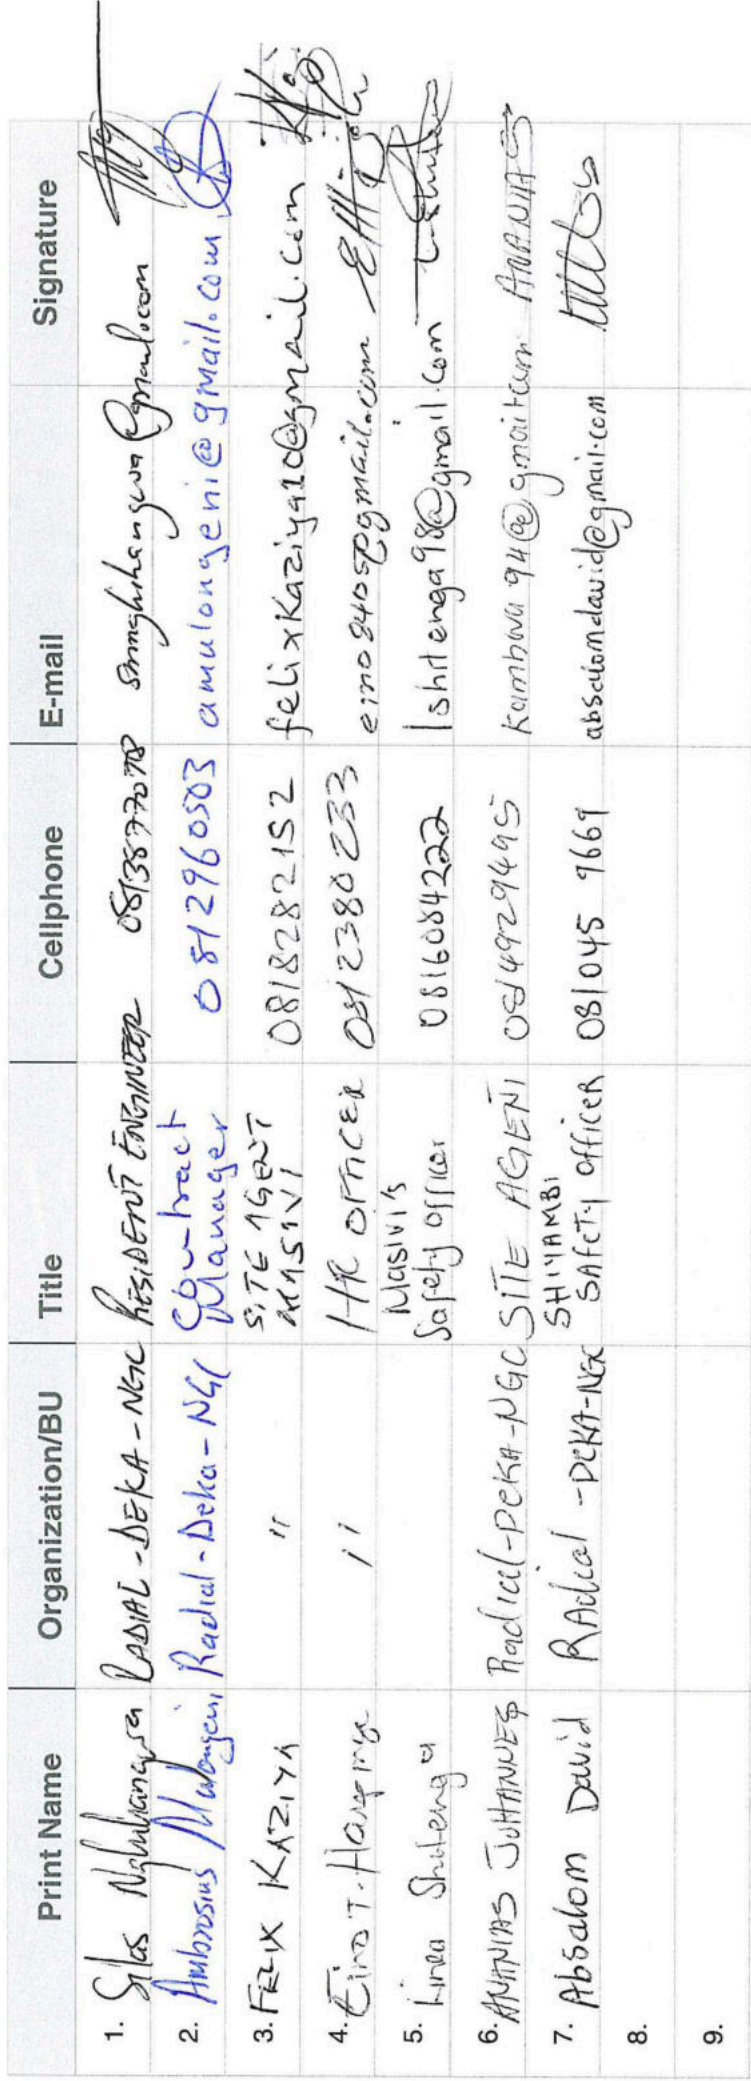 Print Name Organization/BU Title Cellphone E-mail Signature
1. Silas RADIAL-DEKA-NGC RESIDENT ENGINEER
2. Ambrosius Mulongeni Radial-Deka-NGC Contract Manager 0812960503 amulongeni@gmail.com
3. FELIX KAZIYA " SITE AGENT MASIVI 0818282152 felixkaziya10@gmail.com
4. Eino T. " HR OFFICER 0812380233 eino8405@gmail.com
5. Linea Shitenga Masivi's Safety Officer 0816084222 lshitenga98@gmail.com
6. ANANIAS JOHANNES Radial-DEKA-NGC SITE AGENT 0814929495 ANANIAS
7. Absalom David RAdial-DEKA-NGC SHIYAMBI SAFETY officer 081045 9669 absalomdavid@gmail.com
8.
9.